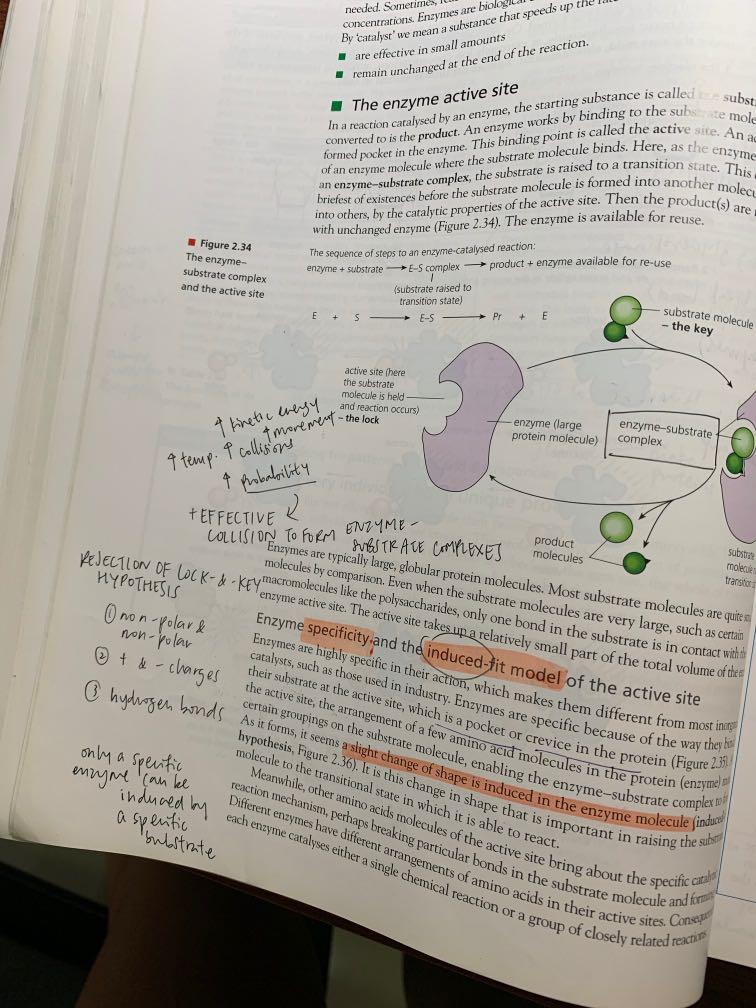 needed. Sometimes,
concentrations. Enzymes are biological
By 'catalyst' we mean a substance that speeds up the
■ are effective in small amounts
■ remain unchanged at the end of the reaction.
■ The enzyme active site
In a reaction catalysed by an enzyme, the starting substance is called
converted to is the product. An enzyme works by binding to the substrate
formed pocket in the enzyme. This binding point is called the active site. An
of an enzyme molecule where the substrate molecule binds. Here, as the enzyme
an enzyme–substrate complex, the substrate is raised to a transition state. This
briefest of existences before the substrate molecule is formed into another
into others, by the catalytic properties of the active site. Then the product(s) are
with unchanged enzyme (Figure 2.34). The enzyme is available for reuse.
■ Figure 2.34
The enzyme–
substrate complex
and the active site
The sequence of steps to an enzyme-catalysed reaction:
enzyme + substrate → E–S complex → product + enzyme available for re-use
(substrate raised to
transition state)
E + S → E–S → Pr + E
substrate molecule
– the key
active site (here
the substrate
molecule is held
and reaction occurs)
– the lock
enzyme (large
protein molecule)
enzyme–substrate
complex
product
molecules
substrate
↑ kinetic energy
↑ movement
↑ temp. ↑ collisions
↑ probability
+ EFFECTIVE
COLLISION TO FORM ENZYME-
SUBSTRATE COMPLEXES
Enzymes are typically large, globular protein molecules. Most substrate molecules are quite
molecules by comparison. Even when the substrate molecules are very large, such as certain
macromolecules like the polysaccharides, only one bond in the substrate is in contact with
enzyme active site. The active site takes up a relatively small part of the total volume of the
REJECTION OF LOCK-&-KEY
HYPOTHESIS
① non-polar &
non-polar
② + & - charges
③ hydrogen bonds
only a specific
enzyme can be
induced by
a specific
substrate
Enzyme specificity and the induced-fit model of the active site
Enzymes are highly specific in their action, which makes them different from most
catalysts, such as those used in industry. Enzymes are specific because of the way they
their substrate at the active site, which is a pocket or crevice in the protein (Figure 2.35).
the active site, the arrangement of a few amino acid molecules in the protein (enzyme)
certain groupings on the substrate molecule, enabling the enzyme–substrate complex to
As it forms, it seems a slight change of shape is induced in the enzyme molecule
hypothesis, Figure 2.36). It is this change in shape that is important in raising the
molecule to the transitional state in which it is able to react.
Meanwhile, other amino acids molecules of the active site bring about the specific
reaction mechanism, perhaps breaking particular bonds in the substrate molecule and
Different enzymes have different arrangements of amino acids in their active sites.
each enzyme catalyses either a single chemical reaction or a group of closely related reactions